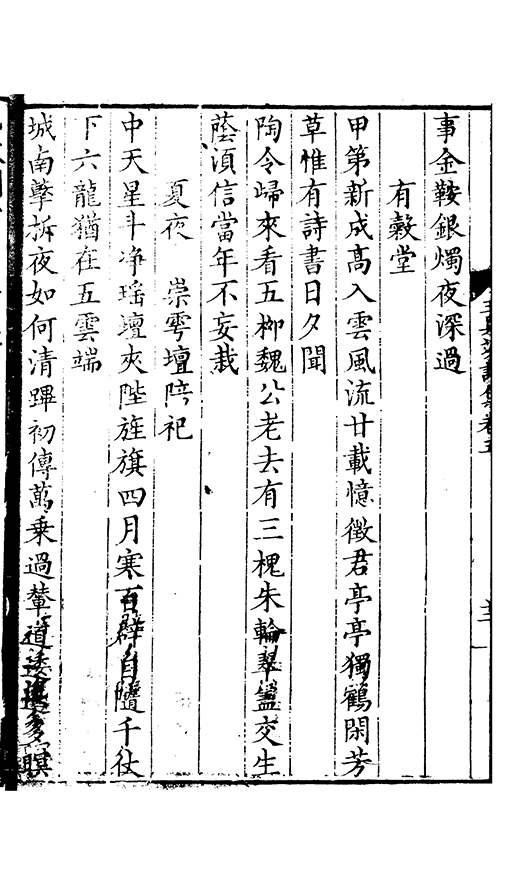 事金鞍銀燭夜深過
有穀堂
甲第新成高入雲風流廿載憶徵君亭亭獨鶴閑芳
草惟有詩書日夕聞
陶令歸來看五柳魏公老去有三槐朱輪翠蓋交生
蔭須信當年不妄栽
夏夜 崇雩壇陪祀
中天星斗净瑤壇夾陛旌旗四月寒百辟自隨千仗
下六龍猶在五雲端
城南擊柝夜如何清蹕初傳萬乗過輦道逶 多